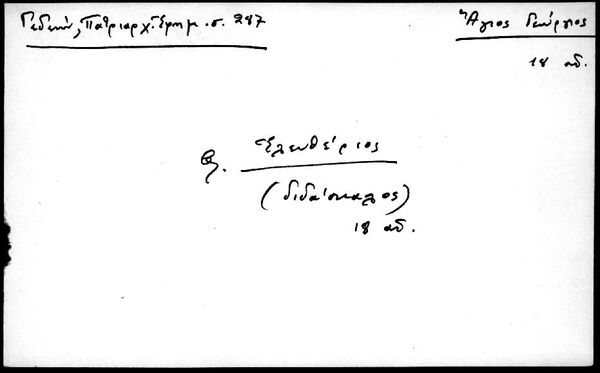 Γεδεών, Πατριαρχ. Ἐφημ. σ. 287
Ἅγιος Γεώργιος
18 αἰ.
βλ. Ἐλευθέριος
(διδάσκαλος)
18 αἰ.